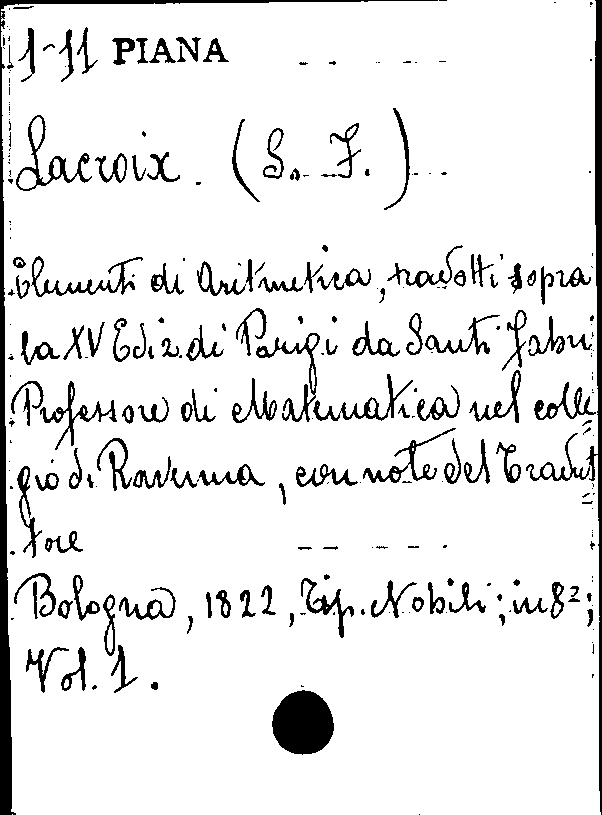 1-11 PIANA
Lacroix. (S. F.)
Elementi di Aritmetica, tradotti sopra
la XV Ediz. di Parigi da Santi Fabri
Professore di Matematica nel colle=
gio di Ravenna, con note del Tradut=
tore
Bologna, 1822, Tip. Nobili; in 8º;
Vol. 1.